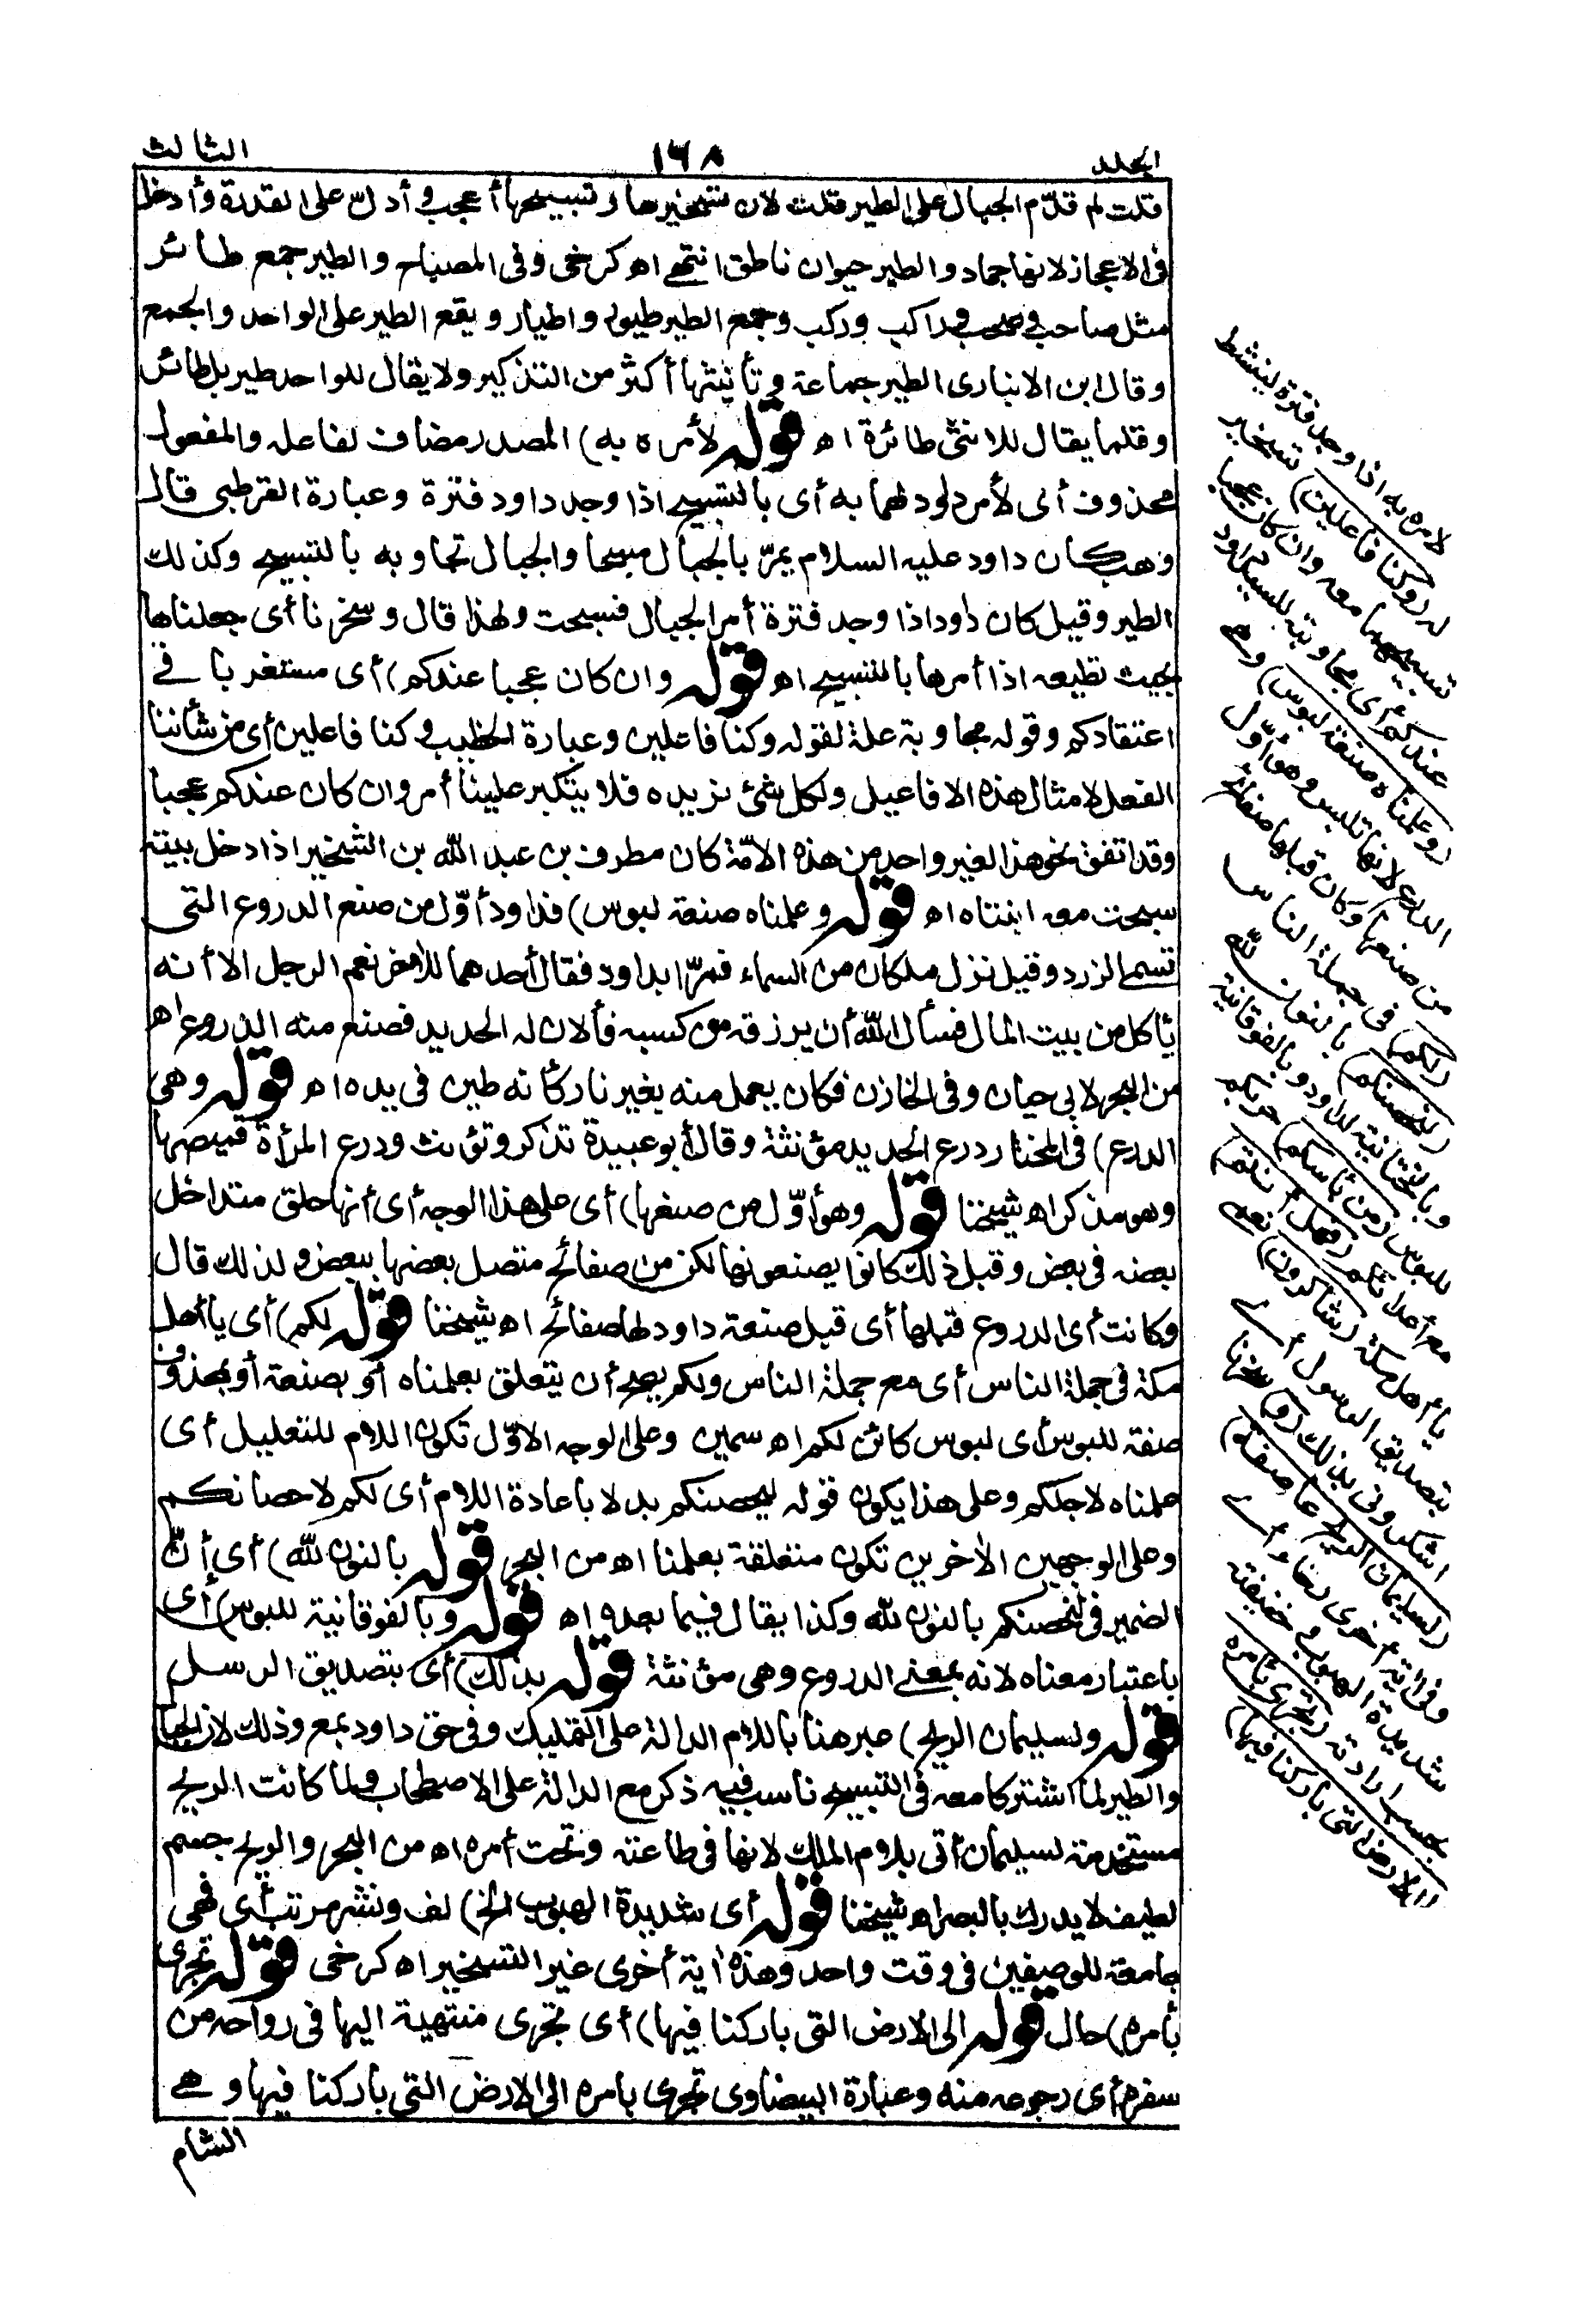 الجلد ١٦٨ الثالث
قلت لم قدّم الجبال على الطير قلت لان تسخيرها وتسبيحها أعجب وأدل على القدرة وأدخل
فى الاعجاز لانها جماد والطير حيوان ناطق انتهى اه كرخى وفى المصباح والطير جمع طائر
مثل صاحب وصحب وراكب وركب وجمع الطير طيور واطيار ويقع الطير على الواحد والجمع
وقال ابن الانبارى الطير جماعة وتأنيثها أكثر من التذكير ولا يقال للواحد طير بل طائر
وقلما يقال للانثى طائرة اه قوله لأمره به) المصدر مضاف لفاعله والمفعول
محذوف أى لأمر داود لهما به أى بالتسبيح اذا وجد داود فترة وعبارة القرطبى قال
وهب كان داود عليه السلام يمرّ بالجبال مسبحا والجبال تجاوبه بالتسبيح وكذلك
الطير وقيل كان داود اذا وجد فترة أمر الجبال فسبحت ولهذا قال وسخرنا أى جعلناها
بحيث تطيعه اذا أمرها بالتسبيح اه قوله وان كان عجبا عندكم) أى مستغربا فى
اعتقادكم وقوله مجاوبة علة لقوله وكنا فاعلين وعبارة الخطيب وكنا فاعلين أى من شأننا
الفعل لامثال هذه الافاعيل ولكل شئ نريده فلا يتكبر علينا أمر وان كان عندكم عجبا
وقد اتفق نحو هذا لغير واحد من هذه الامّة كان مطرف بن عبد الله بن الشخير اذا دخل بيته
سبحت معه ابنتاه اه قوله وعلمناه صنعة لبوس) فداود أوّل من صنع الدروع التى
تسمى الزرد وقيل نزل ملكان من السماء فمرّا بداود فقال أحدهما للآخر نعم الرجل الا أنه
يأكل من بيت المال فسأل الله أن يرزقه من كسبه فألان له الحديد فصنع منه الدروع اه
من البحر لابى حيان وفى الخازن فكان يعمل منه بغير نار كأنه طين فى يده اه قوله وهى
الدرع) فى المختار درع الحديد مؤنثة وقال أبو عبيدة تذكر وتؤنث ودرع المرأة قميصها
وهو مذكر اه شيخنا قوله وهو أوّل من صنعها) أى على هذا الوجه أى أنها حلق متداخل
بعضه فى بعض وقبل ذلك كانوا يصنعونها لكن من صفائح متصل بعضها ببعض ولذلك قال
وكانت أى الدروع قبلها أى قبل صنعة داود لها صفائح اه شيخنا قوله لكم) أى يا أهل
مكة فى جملة الناس أى مع جملة الناس ولكم يصح أن يتعلق بعلمناه أو بصنعة أو بمحذوف
صفة للبوس أى لبوس كائن لكم اه سمين وعلى الوجه الاوّل تكون اللام للتعليل أى
علمناه لاجلكم وعلى هذا يكون قوله ليحصنكم بدلا باعادة اللام أى لكم لاحصانكم
وعلى الوجهين الآخرين تكون متعلقة بعلمنا اه من البحر قوله بالنون لله) أى أنّ
الضمير فى لنحصنكم بالنون لله وكذا يقال فيما بعده اه قوله وبالفوقانية للبوس) أى
باعتبار معناه لانه بمعنى الدروع وهى مؤنثة قوله بذلك) أى بتصديق الرسل
قوله ولسليمان الريح) عبر هنا باللام الدالة على التمليك وفى حق داود بمع وذلك لان الجبال
والطير لما اشتركا معه فى التسبيح ناسب فيه ذكر مع الدالة على الاصطحاب ولما كانت الريح
مستخدمة لسليمان أتى بلام الملك لانها فى طاعته وتحت أمره اه من البحر والريح جسم
لطيف لا يدرك بالبصر اه شيخنا قوله أى شديدة الهبوب الخ) لف ونشر مرتب أى فهى
جامعة للوصفين فى وقت واحد وهذه آية أخرى غير التسخير اه كرخى قوله تجرى
بأمره) حال قوله الى الارض التى باركنا فيها) أى تجرى منتهية اليها فى رواحه من
سفره أى رجوعه منه وعبارة البيضاوى تجرى بامره الى الارض التى باركنا فيها وهى
الشام
لامره به اذا وجد فترة لينشط
له (وكنا فاعلين) تسخير
تسبيحهما معه وان كان عجبا
عندكم أى مجاوبته للسيد داود
(وعلمناه صنعة لبوس) وهى
الدرع لانها تلبس وهو أوّل
من صنعها وكان قبلها صفائح
(لكم) فى جملة الناس
(لنحصنكم) بالنون لله
وبالتحتانية لداود وبالفوقانية
للبوس (من بأسكم) حربكم
مع أعدائكم (فهل أنتم)
يا أهل مكة (شاكرون) نعمى
بتصديق الرسول أى
اشكرونى بذلك (و) سخرنا
(لسليمان الريح عاصفة)
وفى آية أخرى رخاء أى
شديدة الهبوب وخفيفته
بحسب ارادته (تجرى بأمره
الى الارض التى باركنا فيها)